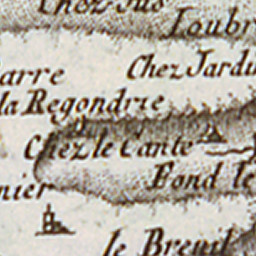 Chez Jus
Loubr
arre
Chez Jardi
la Regondrie
Chez le Cante
nier
Fond le
le Breuil